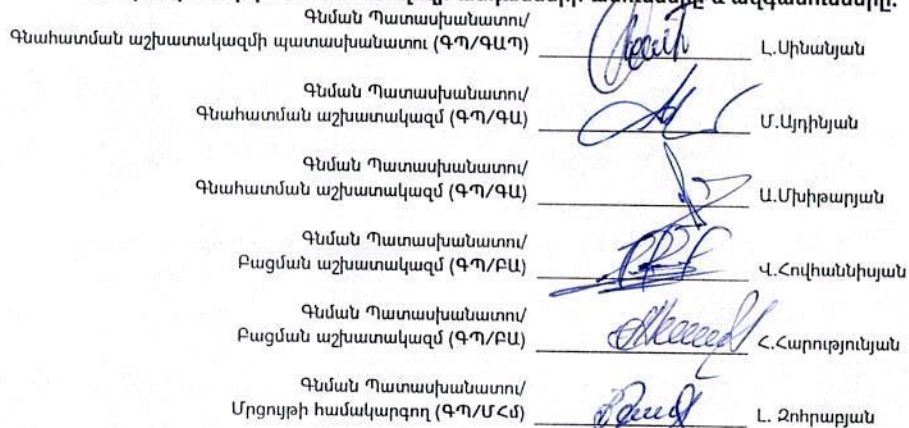 անունները և ազգանունները.
Գնման Պատասխանատու/
Գնահատման աշխատակազմի պատասխանատու (ԳՊ/ԳԱՊ) Լ.Սինանյան
Գնման Պատասխանատու/
Գնահատման աշխատակազմ (ԳՊ/ԳԱ) Մ.Այդինյան
Գնման Պատասխանատու/
Գնահատման աշխատակազմ (ԳՊ/ԳԱ) Ա.Մխիթարյան
Գնման Պատասխանատու/
Բացման աշխատակազմ (ԳՊ/ԲԱ) Վ.Հովհաննիսյան
Գնման Պատասխանատու/
Բացման աշխատակազմ (ԳՊ/ԲԱ) Հ.Հարությունյան
Գնման Պատասխանատու/
Մրցույթի համակարգող (ԳՊ/ՄՀմ) Լ. Զոհրաբյան